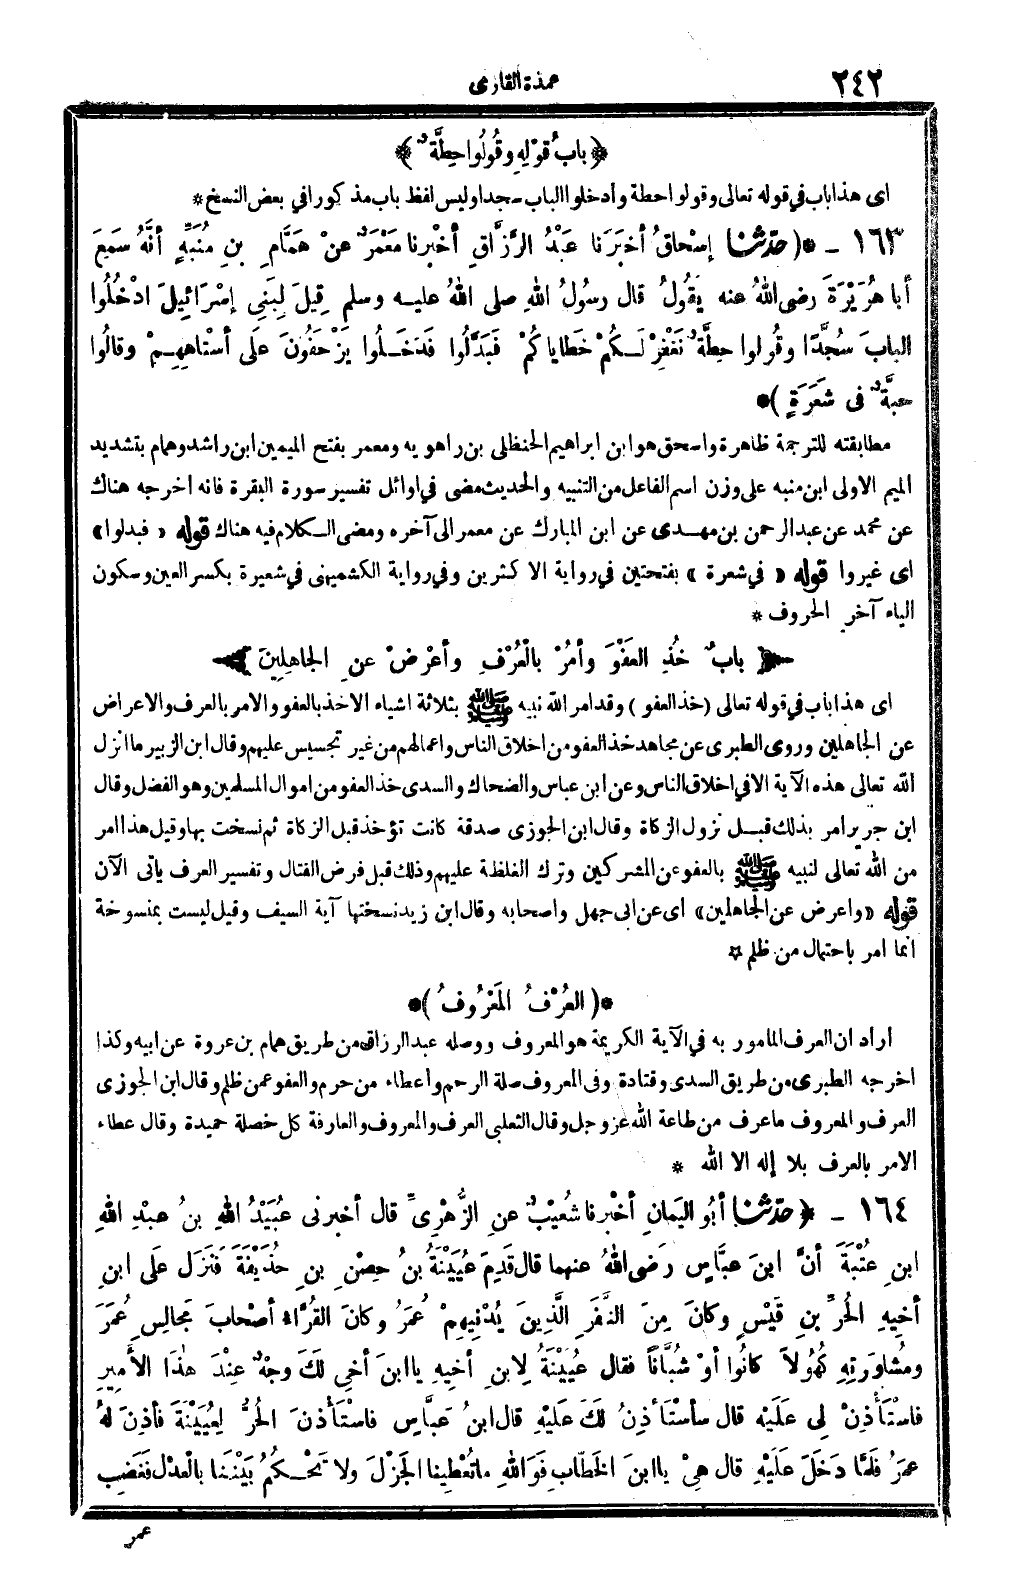 ٢٤٢ عمدة القارى
﴿ بابُ قَوْلِهِ وَقُولُوا حِطَّةٌ ﴾
اى هذا باب في قوله تعالى وقولوا حطة وأدخلوا الباب سجدا وليس لفظ باب مذكورا في بعض النسخ *
١٦٣ - ( حدّثنا إسْحاقُ أخبَرَنا عَبْدُ الرَّزَّاقِ أخْبرنا مَعْمَرٌ عنْ هَمَّامِ بنِ مُنَبِّهٍ أنَّهُ سَمِعَ
أبا هُرَيْرَةَ رضى اللهُ عنه يَقُولُ قال رسُولُ اللهِ صلى اللهُ عليه وسلم قِيلَ لِبَنِى إسْرَائِيلَ ادْخُلُوا
البابَ سُجَّدًا وقُولوا حِطَّةٌ نَغْفِرْ لَكُمْ خَطاياكُمْ فَبَدَّلُوا فَدَخَلُوا يَزْحَفُونَ عَلَى أسْتاهِهِمْ وقالُوا
حبَّةٌ فى شَعَرَةٍ ) *
مطابقته للترجمة ظاهرة واسحق هو ابن ابراهيم الحنظلى بن راهويه ومعمر بفتح الميمين ابن راشد وهمام بتشديد
الميم الاولى ابن منبه على وزن اسم الفاعل من التنبيه والحديث مضى في اوائل تفسير سورة البقرة فانه اخرجه هناك
عن محمد عن عبد الرحمن بن مهدى عن ابن المبارك عن معمر الى آخره ومضى الكلام فيه هناك قوله « فبدلوا »
اى غيروا قوله « في شعرة » بفتحتين في رواية الاكثرين وفي رواية الكشميهنى في شعيرة بكسر العين وسكون
الياء آخر الحروف *
﴿ بابٌ خُذِ العَفْوَ وأمُرْ بالْعُرْفِ وأعْرِضْ عنِ الجاهِلِينَ ﴾
اى هذا باب في قوله تعالى (خذ العفو) وقد امر الله نبيه ﷺ بثلاثة اشياء الاخذ بالعفو والامر بالعرف والاعراض
عن الجاهلين وروى الطبرى عن مجاهد خذ العفو من اخلاق الناس واعمالهم من غير تجسيس عليهم وقال ابن الزبير ما انزل
الله تعالى هذه الآية الا في اخلاق الناس وعن ابن عباس والضحاك والسدى خذ العفو من اموال المسلمين وهو الفضل وقال
ابن جرير امر بذلك قبل نزول الزكاة وقال ابن الجوزى صدقة كانت تؤخذ قبل الزكاة ثم نسخت بها وقيل هذا امر
من الله تعالى لنبيه ﷺ بالعفو عن المشركين وترك الغلظة عليهم وذلك قبل فرض القتال وتفسير العرف ياتى الآن
قوله « واعرض عن الجاهلين » اى عن ابى جهل واصحابه وقال ابن زيد نسختها آية السيف وقيل ليست بمنسوخة
انما امر باحتمال من ظلم *
*( العُرْفُ المَعْرُوفُ )*
اراد ان العرف المأمور به في الآية الكريمة هو المعروف ووصله عبد الرزاق من طريق همام بن عروة عن ابيه وكذا
اخرجه الطبرى من طريق السدى وقتادة وفى المعروف صلة الرحم واعطاء من حرم والعفو عمن ظلم وقال ابن الجوزى
العرف والمعروف ما عرف من طاعة الله عز وجل وقال الثعلبى العرف والمعروف والعارفة كل خصلة حميدة وقال عطاء
الامر بالعرف بلا إله الا الله *
١٦٤ - ﴿ حدّثنا أبُو اليَمانِ أخْبرنا شُعَيْبٌ عنِ الزُّهْرِىِّ قال أخبرنى عُبَيْدُ اللهِ بنُ عبْدِ اللهِ
ابنِ عُتْبَةَ أنَّ ابنَ عبَّاسٍ رضى اللهُ عنهما قال قَدِمَ عُيَيْنَةُ بنُ حِصْنِ بنِ حُذَيْفَةَ فَنَزَلَ عَلَى ابنِ
أخِيهِ الحُرِّ بنِ قَيْسٍ وكانَ مِنَ النَّفَرِ الَّذِينَ يُدْنِيهِمْ عُمَرُ وكانَ القُرَّاءُ أصْحابَ مَجالِسِ عُمَرَ
ومُشاوَرَتِهِ كُهُولاً كانُوا أوْ شُبَّاناً فقال عُيَيْنَةُ لِابنِ أخِيهِ ياابنَ أخِى لَكَ وجْهٌ عِنْدَ هٰذَا الأمِيرِ
فاسْتَأْذِنْ لِى عَلَيْهِ قال سأسْتَأْذِنُ لَكَ عَلَيْهِ قال ابنُ عبَّاسٍ فاسْتَأْذَنَ الحُرُّ لِعُيَيْنَةَ فأذِنَ لهُ
عمَرُ فَلَمَّا دَخَلَ عَلَيْهِ قال هِىْ ياابنَ الخَطّابِ فَوَاللهِ ماتُعْطِينا الجَزْلَ ولا تَحْكُمُ بَيْنَنا بالْعَدْلِ فغَضِبَ
عمر